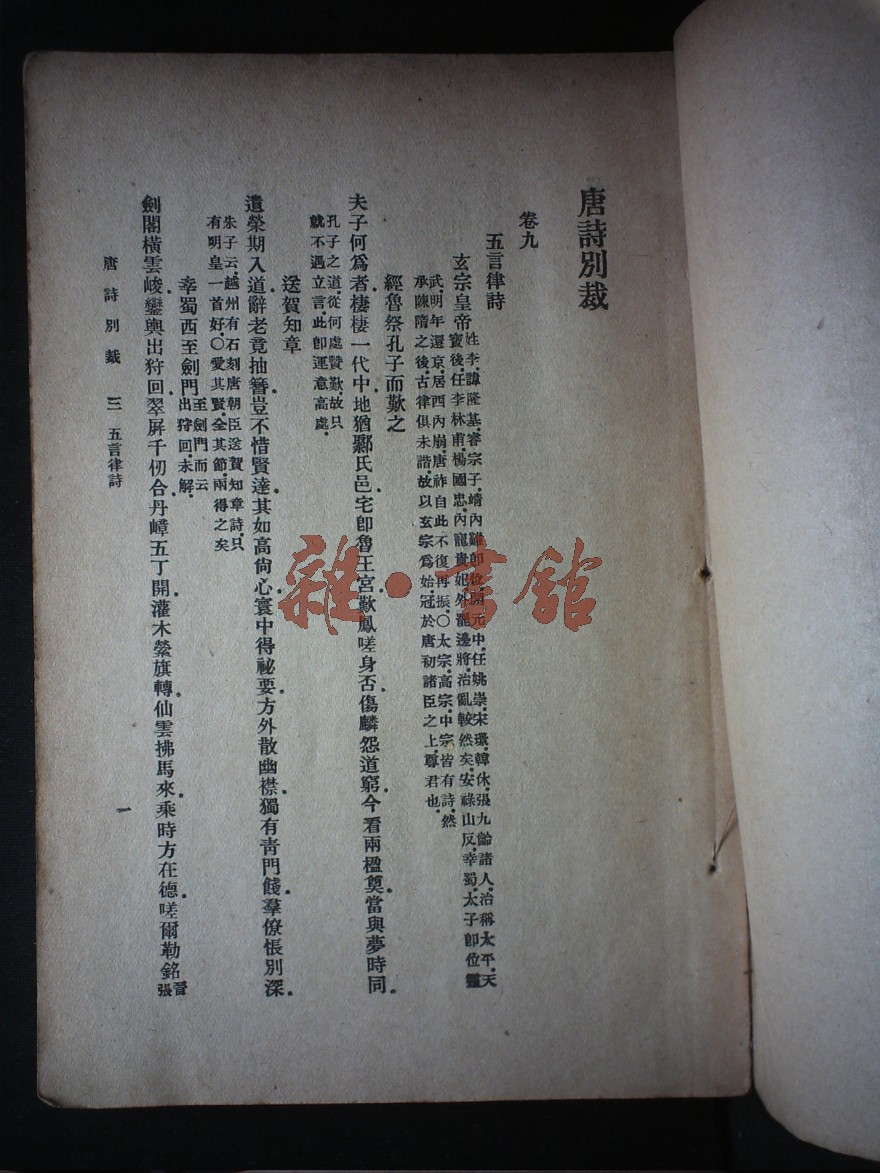 唐詩別裁
卷九
五言律詩
玄宗皇帝 姓李，諱隆基，睿宗子，靖內難即位，開元中，任姚崇，宋璟，韓休，張九齡諸人，治稱太平，天
寶後，任李林甫，楊國忠，內寵貴妃，外寵邊將，治亂較然矣，安祿山反，幸蜀，太子即位靈
武，明年還京，居西內崩，唐祚自此不復再振，〇太宗，高宗，中宗皆有詩，然
承陳隋之後，古律俱未諧，故以玄宗爲始，冠於唐初諸臣之上，尊君也，
經魯祭孔子而歎之
夫子何爲者，棲棲一代中，地猶鄹氏邑，宅卽魯王宮，歎鳳嗟身否，傷麟怨道窮，今看兩楹奠，當與夢時同，
孔子之道，從何處贊歎，故只
就不遇立言，此卽運意高處，
送賀知章
遺榮期入道，辭老竟抽簪，豈不惜賢達，其如高尙心，寰中得祕要，方外散幽襟，獨有靑門餞，羣僚悵別深，
朱子云，越州有石刻唐朝臣送賀知章詩，只
有明皇一首好，〇愛其賢，全其節，兩得之矣
幸蜀西至劍門 至劍門而云
出狩回，未解，
劍閣橫雲峻，鑾輿出狩回，翠屏千仞合，丹嶂五丁開，灌木縈旗轉，仙雲拂馬來，乘時方在德，嗟爾勒銘 晉
張
唐詩別裁 三 五言律詩
一
雜·書館